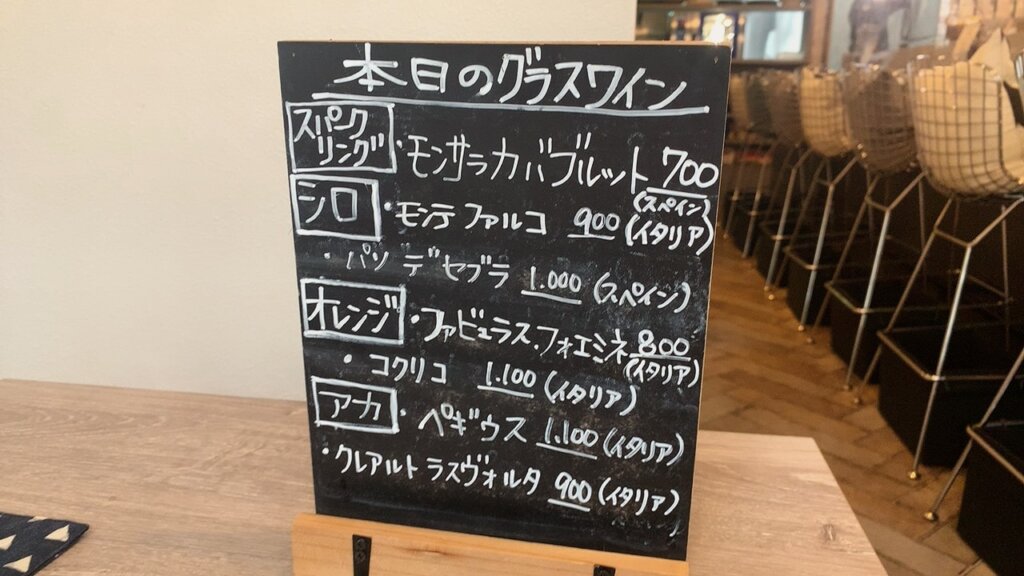 本日のグラスワイン
スパークリング ・モンサラカバブルット 700
(スペイン)
シロ ・モンテファルコ 900 (イタリア)
・パソ デ セブラ 1.000 (スペイン)
オレンジ ・ファビュラス.フォエミネ 800
(イタリア)
・コクリコ 1.100 (イタリア)
アカ ・ペギウス 1.100 (イタリア)
・クレアルト ラスヴォルタ 900 (イタリア)